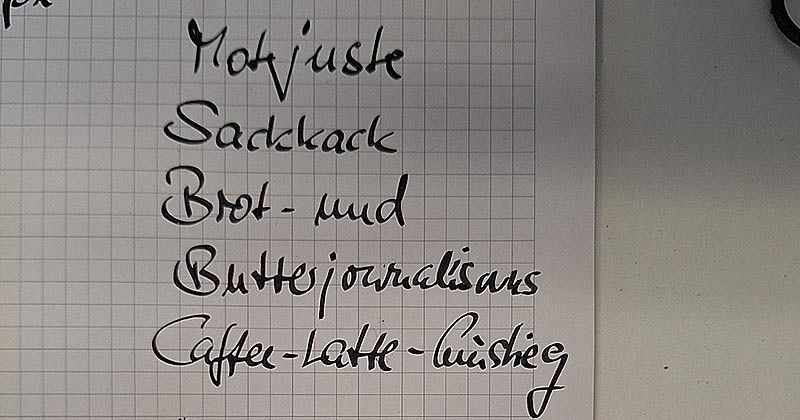 Motjuste
Sackkack
Brot- und
Butterjournalismus
Caffee-Latte-